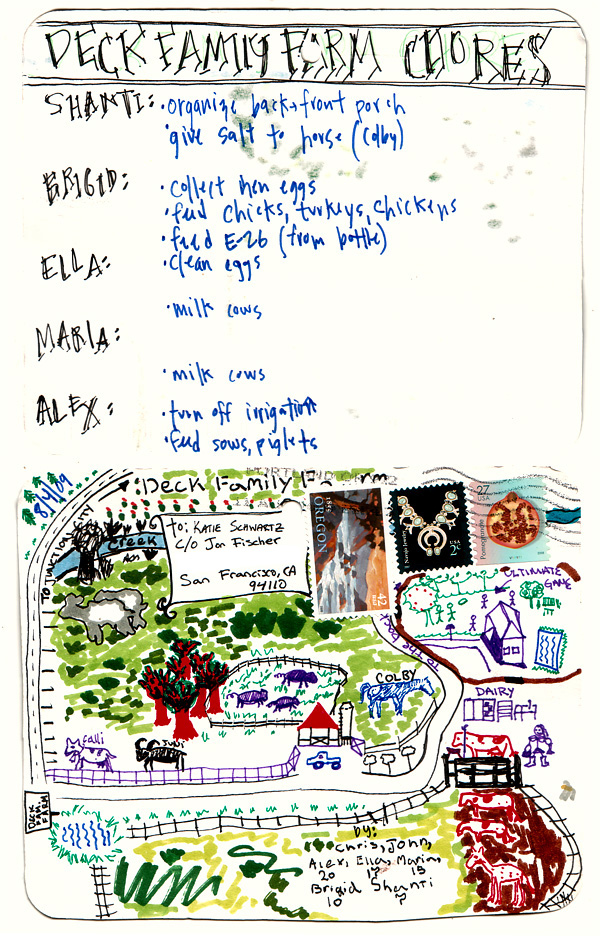 DECK FAMILY FARM CHORES
SHANTI: • organize back + front porch
• give salt to horse (colby)
BRIGID: • collect hen eggs
• feed chicks, turkeys, chickens
• feed E-26 (from bottle)
ELLA: • clean eggs
• milk cows
MARIA:
• milk cows
ALEX: • turn off irrigation
• feed sows, piglets
8/4/09
Deck Family Farm
TO JUNCTION CITY
Creek
to: KATIE SCHWARTZ
c/o Jon Fischer
San Francisco, CA
94110
1859
OREGON
42
USA
2¢
27
USA
Pomegranate
ULTIMATE
GAME
To the Deck
COLBY
DAIRY
JUNI
DECK
FAM.
FARM
by:
Chris, John,
Alex, Ella, Maria,
20 13
Brigid Shanti
10